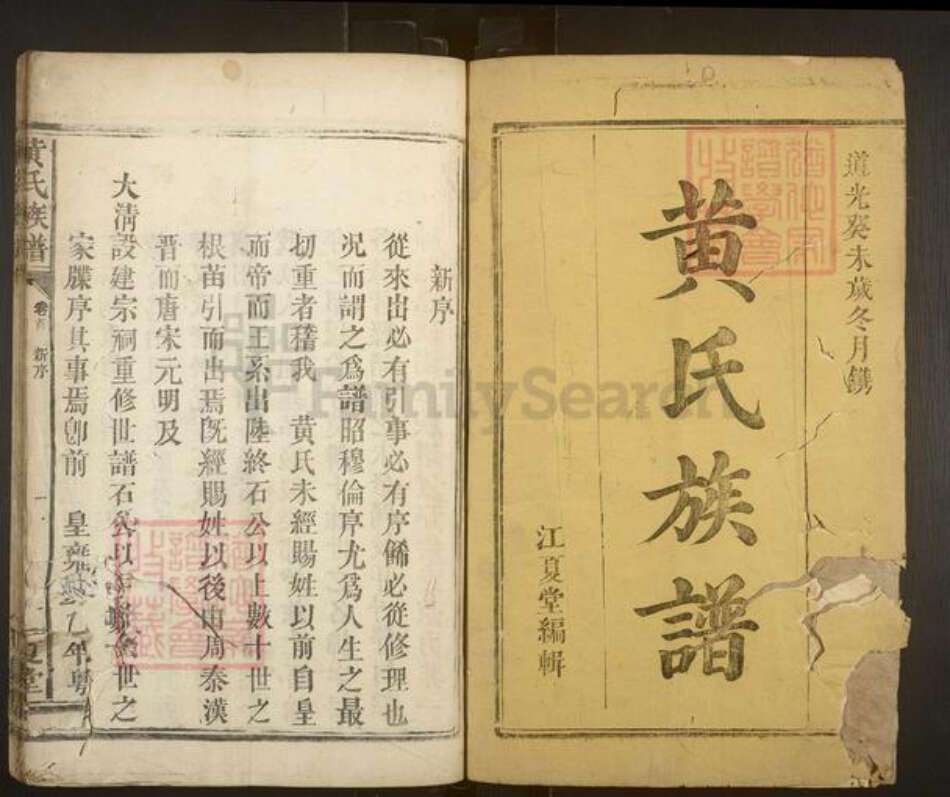 道光癸未歲冬月鐫
黃氏族譜
江夏堂編輯
新序
從來出必有引事必有序餙必從修理也
况而謂之為譜昭穆倫序尤為人生之最
切重者稽我　黃氏未經賜姓以前自皇
而帝而王系出陸終石公以上數十世之
根苗引而出焉旣經賜姓以後由周秦漢
晋而唐宋元明及
大淸設建宗祠重修世譜石公以世之
家牒序其事焉卽前　皇乙年粤
黃氏族譜
卷首　新序　一
堂
FamilySearch